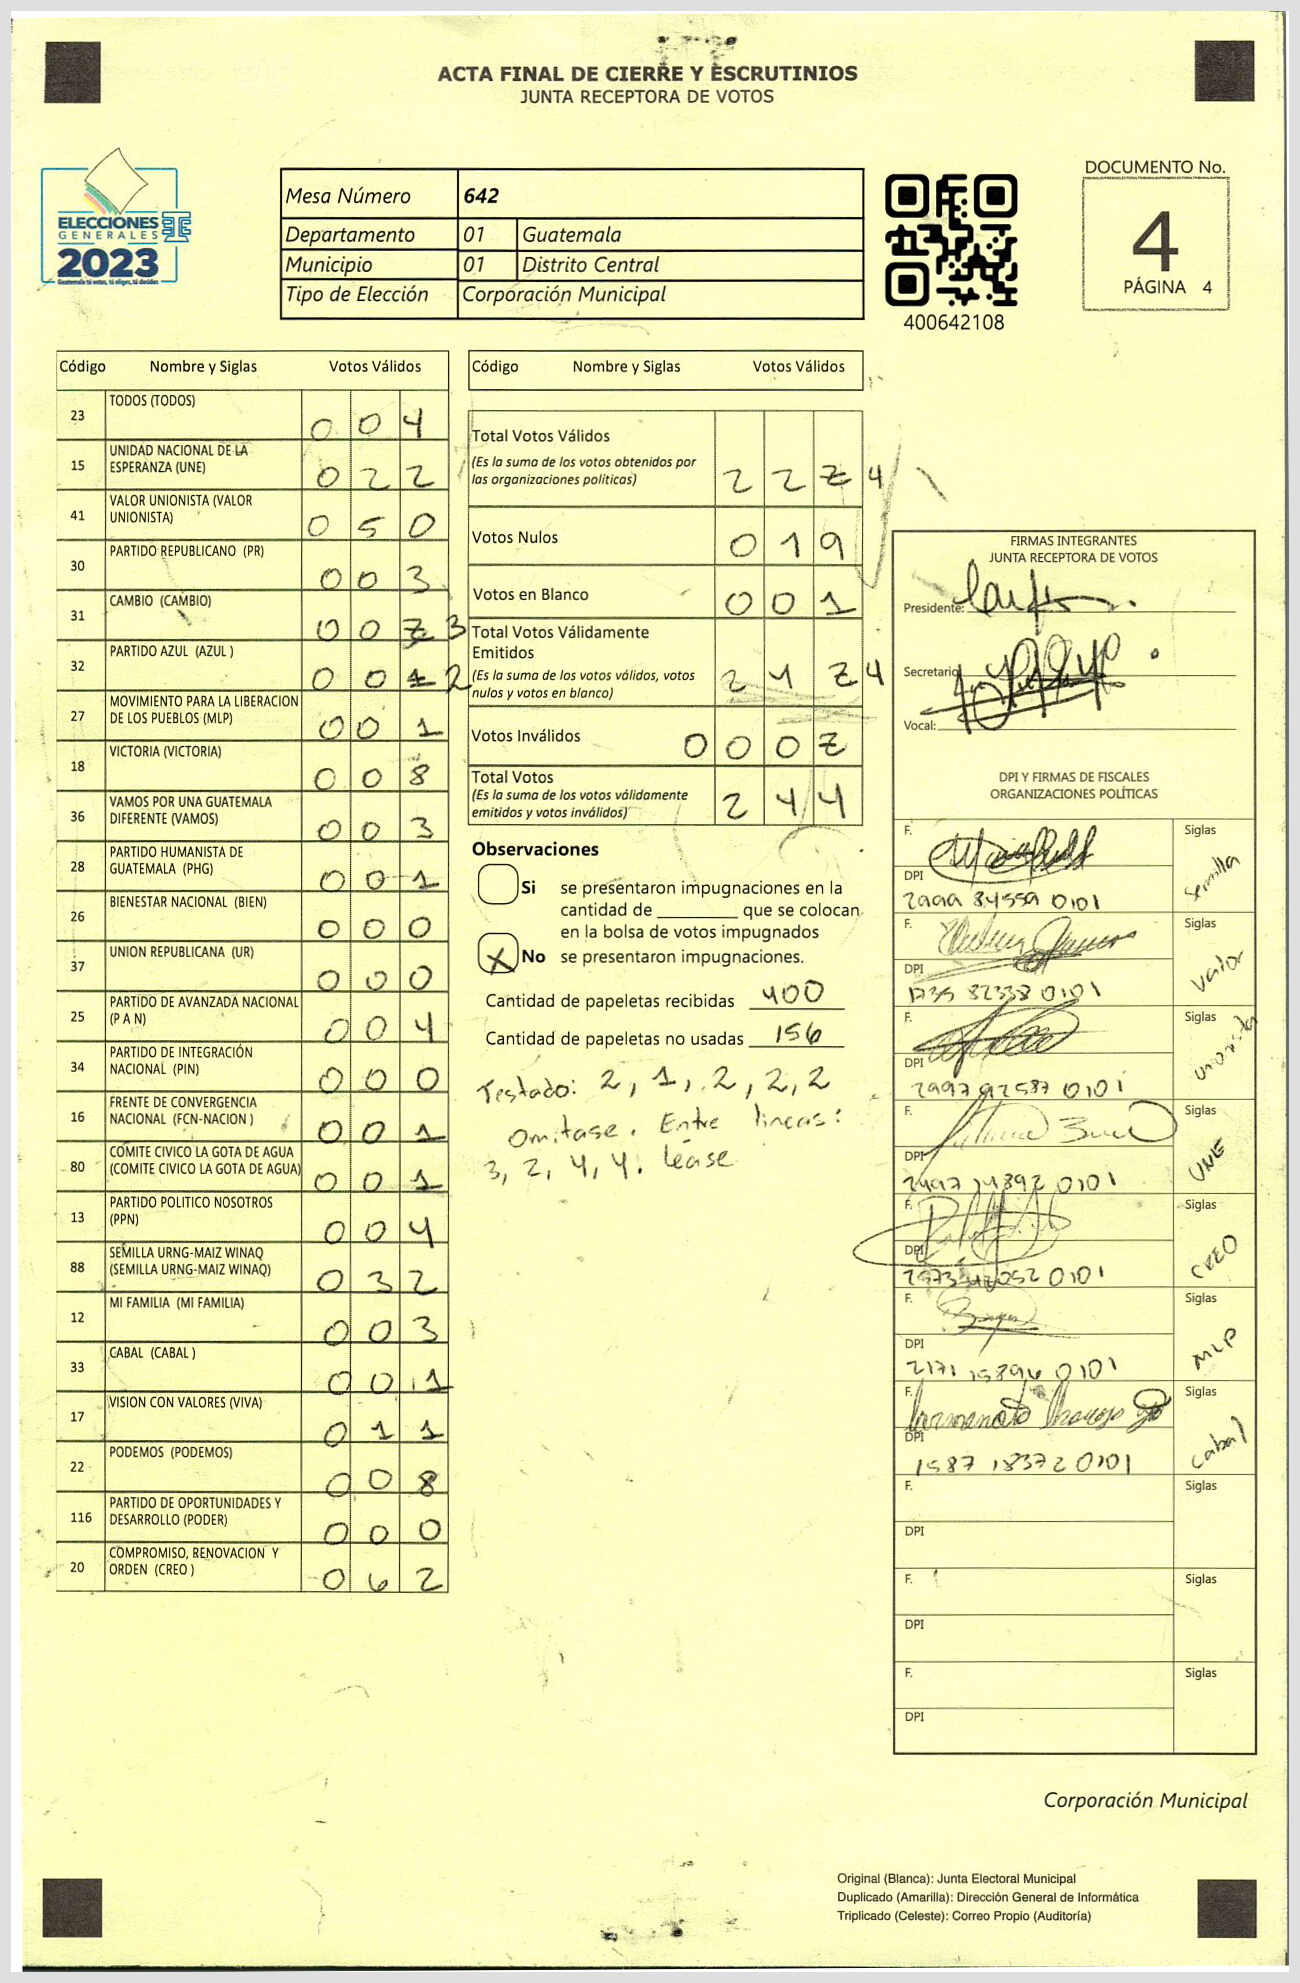 ACTA FINAL DE CIERRE Y ESCRUTINIOS
JUNTA RECEPTORA DE VOTOS
ELECCIONES
GENERALES
2023
Guatemala tú votas, tú eliges, tú decides
Mesa Número 642
Departamento 01 Guatemala
Municipio 01 Distrito Central
Tipo de Elección Corporación Municipal
400642108
DOCUMENTO No.
4
PÁGINA 4
Código Nombre y Siglas Votos Válidos
23 TODOS (TODOS) 0 0 4
15 UNIDAD NACIONAL DE LA ESPERANZA (UNE) 0 2 2
41 VALOR UNIONISTA (VALOR UNIONISTA) 0 5 0
30 PARTIDO REPUBLICANO (PR) 0 0 3
31 CAMBIO (CAMBIO) 0 0 2 3
32 PARTIDO AZUL (AZUL ) 0 0 1 2
27 MOVIMIENTO PARA LA LIBERACION DE LOS PUEBLOS (MLP) 0 0 1
18 VICTORIA (VICTORIA) 0 0 8
36 VAMOS POR UNA GUATEMALA DIFERENTE (VAMOS) 0 0 3
28 PARTIDO HUMANISTA DE GUATEMALA (PHG) 0 0 1
26 BIENESTAR NACIONAL (BIEN) 0 0 0
37 UNION REPUBLICANA (UR) 0 0 0
25 PARTIDO DE AVANZADA NACIONAL (P A N) 0 0 4
34 PARTIDO DE INTEGRACIÓN NACIONAL (PIN) 0 0 0
16 FRENTE DE CONVERGENCIA NACIONAL (FCN-NACION ) 0 0 1
80 COMITE CIVICO LA GOTA DE AGUA (COMITE CIVICO LA GOTA DE AGUA) 0 0 1
13 PARTIDO POLITICO NOSOTROS (PPN) 0 0 4
88 SEMILLA URNG-MAIZ WINAQ (SEMILLA URNG-MAIZ WINAQ) 0 3 2
12 MI FAMILIA (MI FAMILIA) 0 0 3
33 CABAL (CABAL ) 0 0 1
17 VISION CON VALORES (VIVA) 0 1 1
22 PODEMOS (PODEMOS) 0 0 8
116 PARTIDO DE OPORTUNIDADES Y DESARROLLO (PODER) 0 0 0
20 COMPROMISO, RENOVACION Y ORDEN (CREO ) 0 6 2
Código Nombre y Siglas Votos Válidos
Total Votos Válidos
(Es la suma de los votos obtenidos por
las organizaciones politicas) 2 2 2 4
Votos Nulos 0 1 9
Votos en Blanco 0 0 1
Total Votos Válidamente
Emitidos
(Es la suma de los votos válidos, votos
nulos y votos en blanco) 2 4 2 4
Votos Inválidos 0 0 0 2
Total Votos
(Es la suma de los votos válidamente
emitidos y votos inválidos) 2 4 4
Observaciones
Si se presentaron impugnaciones en la
cantidad de ________ que se colocan
en la bolsa de votos impugnados
X No se presentaron impugnaciones.
Cantidad de papeletas recibidas 400
Cantidad de papeletas no usadas 156
Testado: 2, 1, 2, 2, 2
Omitase. Entre lineas:
3, 2, 4, 4. léase
FIRMAS INTEGRANTES
JUNTA RECEPTORA DE VOTOS
Presidente:
Secretario
Vocal:
DPI Y FIRMAS DE FISCALES
ORGANIZACIONES POLÍTICAS
F. Siglas Semilla
DPI
2999 84559 0101
F. Siglas Valor
DPI
1735 82338 0101
F. Siglas Unionista
DPI
2997 92587 0101
F. Siglas UNE
DPI
2997 14892 0101
F. Siglas CREO
DPI
0101
F. Siglas MLP
DPI
2171 15896 0101
F. Siglas Cabal
DPI
1587 18372 0101
F. Siglas
DPI
F. Siglas
DPI
F. Siglas
DPI
Corporación Municipal
Original (Blanca): Junta Electoral Municipal
Duplicado (Amarilla): Dirección General de Informática
Triplicado (Celeste): Correo Propio (Auditoría)